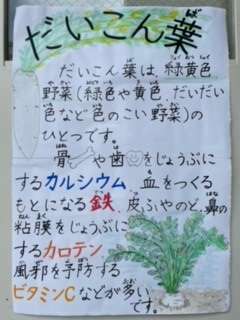 だいこん葉
だいこん葉は、緑黄色
野菜(緑色や黄色、だいだい
色など色のこい野菜)の
ひとつです。
骨や歯をじょうぶに
するカルシウム、血をつくる
もとになる鉄、皮ふやのど、鼻の
粘膜をじょうぶに
するカロテン、
風邪を予防する
ビタミンCなどが多い
です。